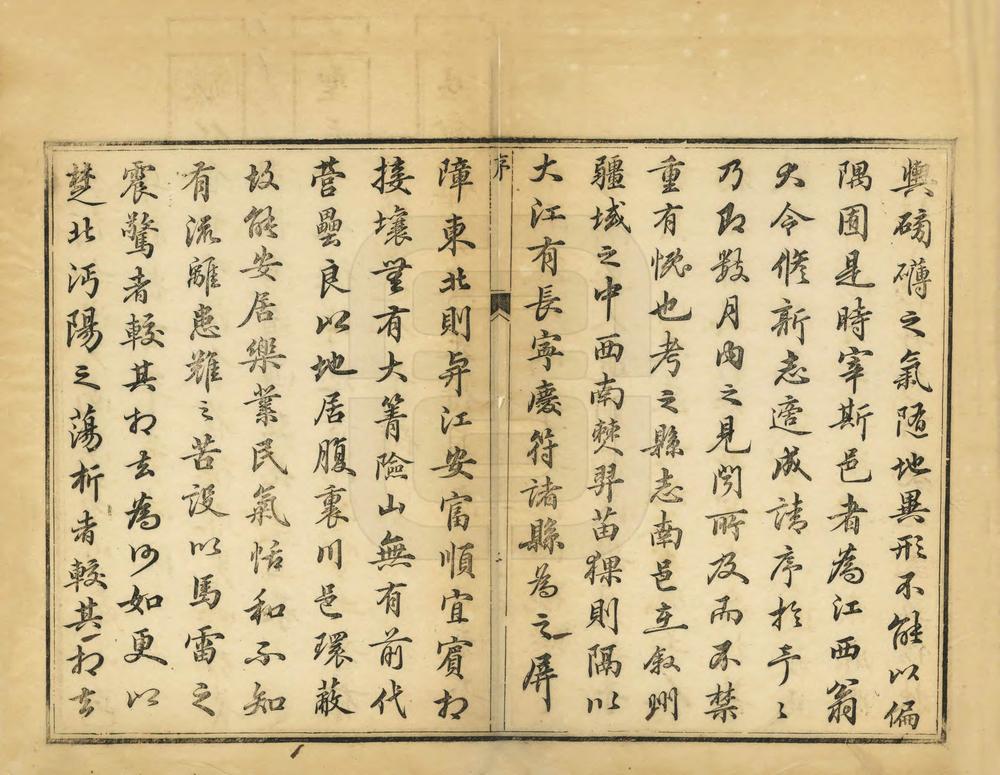 輿磅礴之氣隨地異形不能以偏
隅囿是時宰斯邑者為江西翁
大令修新志適成請序於予予
乃即數月內之見聞所及而不禁
重有慨也考之縣志南邑在敘州
疆域之中西南僰羿苗猓則隔以
大江有長寧慶符諸縣為之屏
序
障東北則與江安富順宜賓相
接壤無有大箐險山無有前代
營壘良以地居腹裏川邑環蔽
故能安居樂業民氣恬和不知
有流離患難之苦設以馬雷之
震驚者較其相去為何如更以
楚北沔陽之蕩析者較其相去